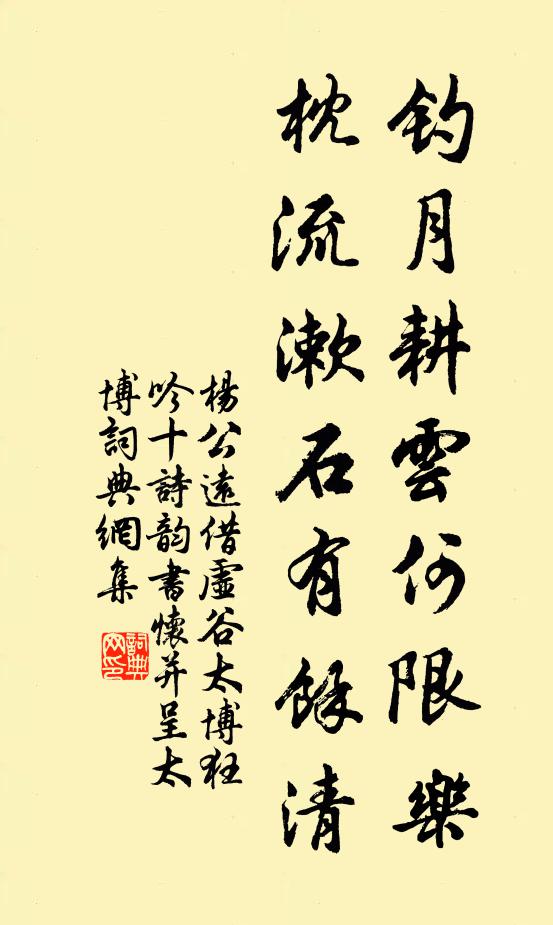 釣月耕雲何限樂
枕流漱石有餘清
楊公遠借虛谷太博狂
吟十詩韵書懷并呈太
博詞典網集
詞典
网印